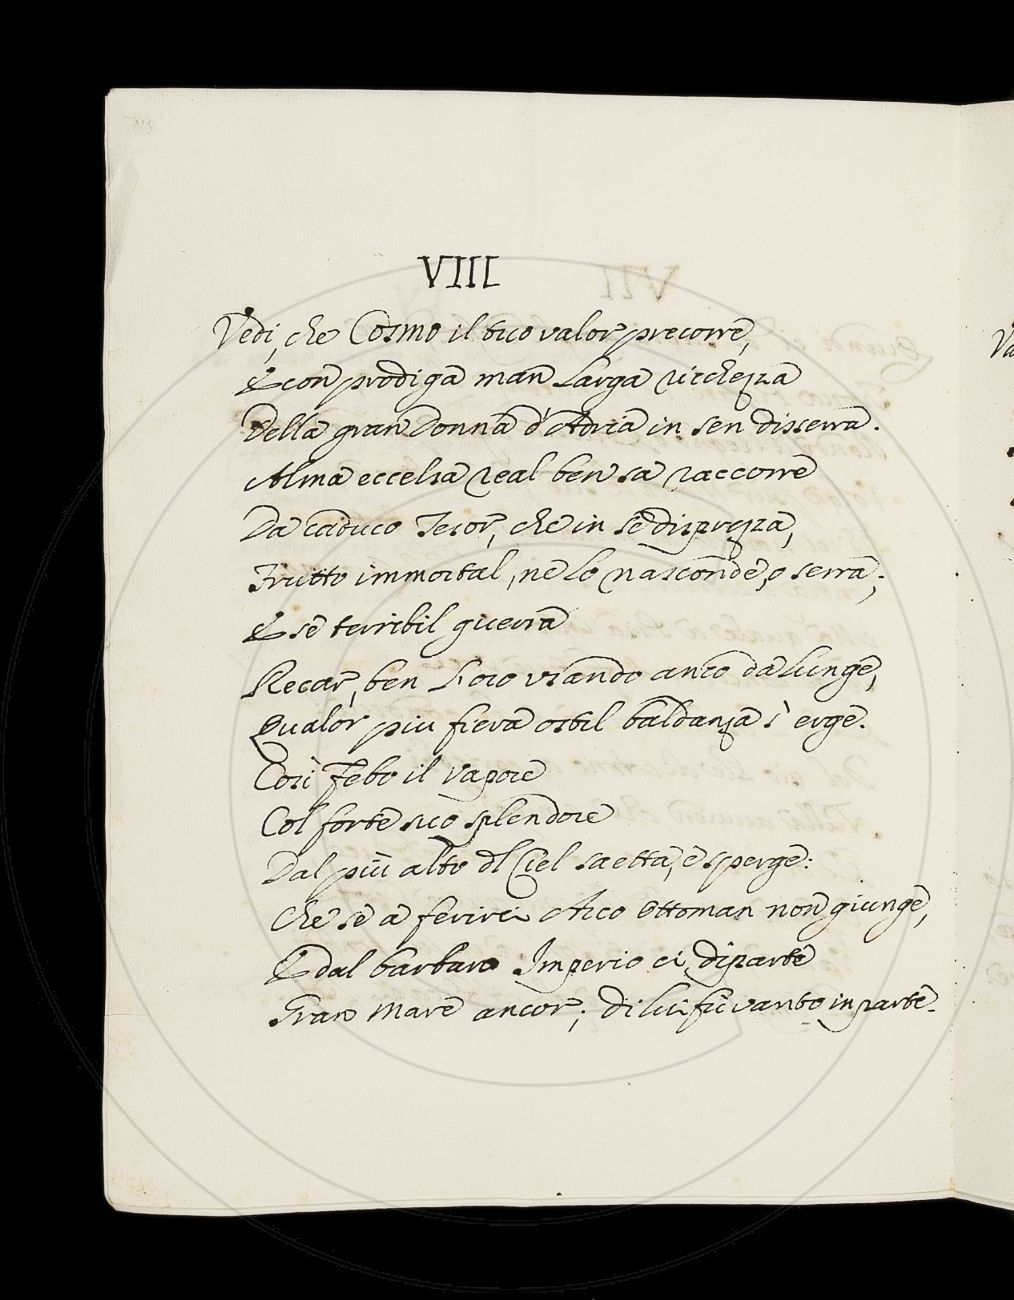 VIII
Vedi, che Cosmo il tuo valor precorre,
E con prodiga man larga ricchezza
Della gran Donna d'Adria in sen disserra.
Alma eccelsa real ben sa raccorre
Da caduco Tesor, che in se disprezza,
Frutto immortal, ne lo nasconde, o serra;
E se terribil guerra
Recar, ben l'oro usando anco da lunge,
Qualor piu fiera ostil baldanza s'erge.
Così Febo il vapore
Col forte suo splendore
Dal più alto del Ciel saetta, e sperge:
Che se a ferire Arco Ottoman non giunge,
E dal barbaro Imperio ei, diparte
Gran Mare ancor; di lui fu vanto in parte.